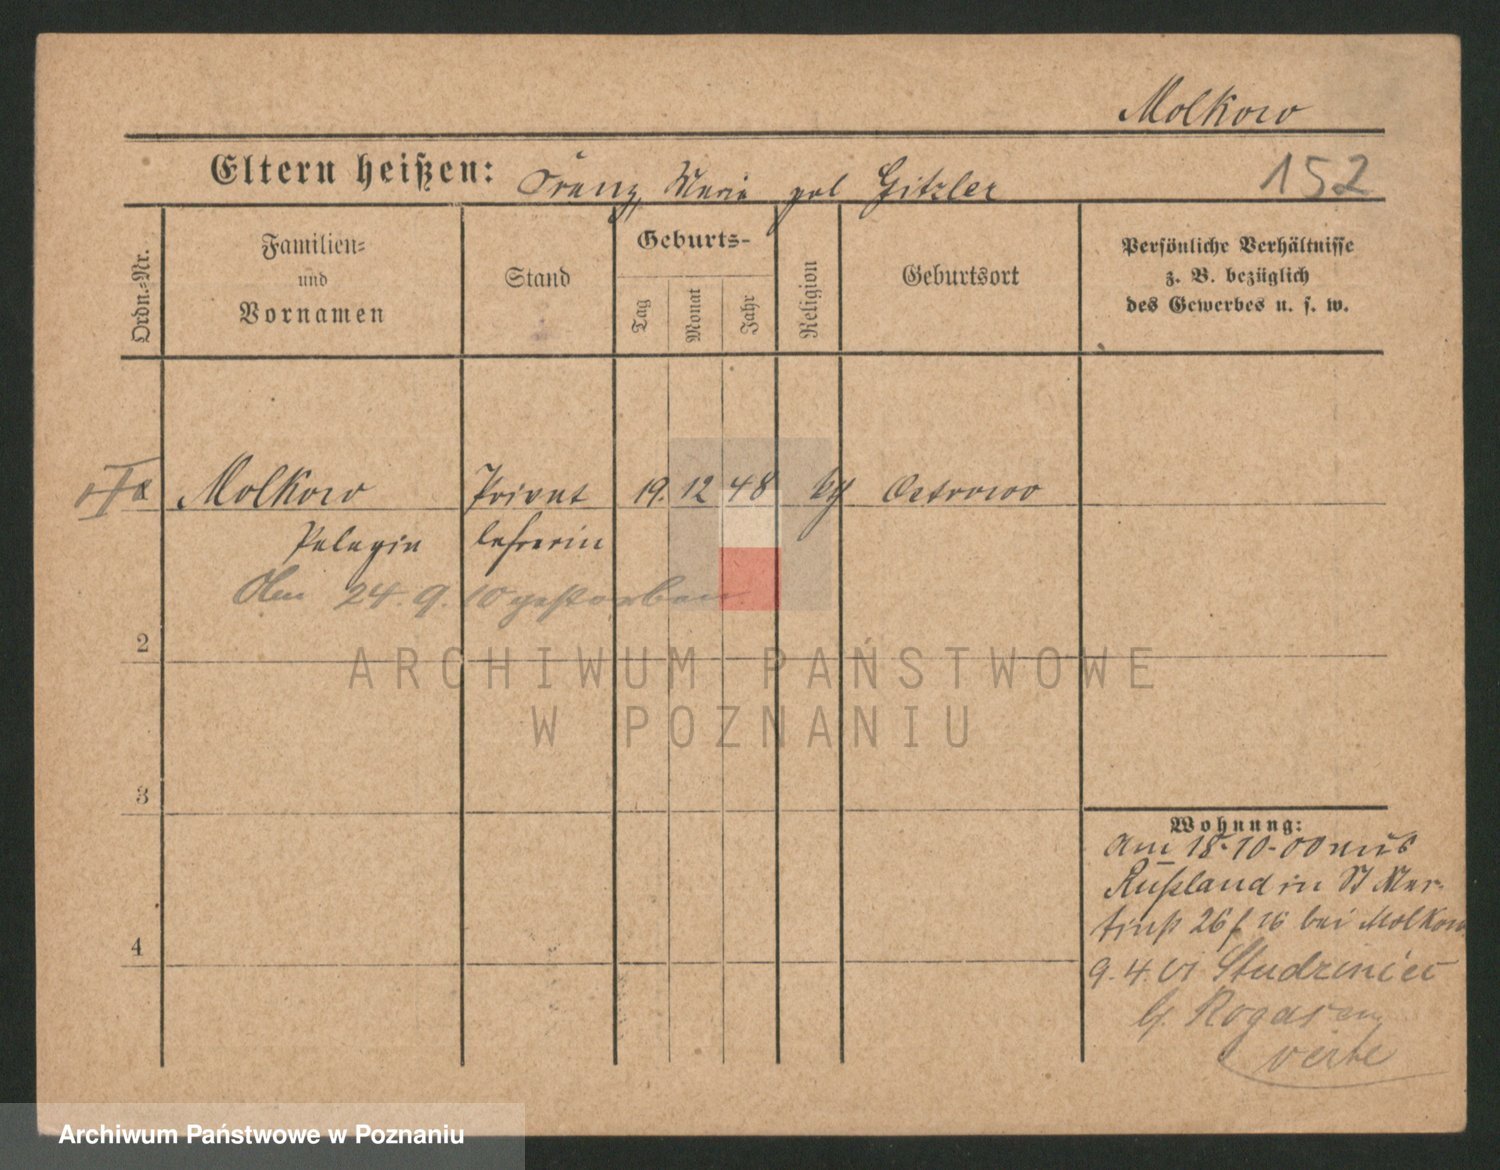 Molkow
Eltern heißen: Franz, Marie geb Gitzler 152
Ordn.-Nr.
Familien-
und
Vornamen
Stand
Geburts-
Tag
Monat
Jahr
Religion
Geburtsort
Persönliche Verhältnisse
z. B. bezüglich
des Gewerbes u. s. w.
Molkow Privat 19. 12 48 Ostrowo
Pelagia lehrerin
Am 24. 9. 10 gestorben
2
ARCHIWUM PAŃSTWOWE
W POZNANIU
3
4
Wohnung:
am 18-10-00 aus
Rußland in St Mar-
tinst 26 bei Molkow
9. 4. 01 Studziniec
b. Rogasen
Archiwum Państwowe w Poznaniu